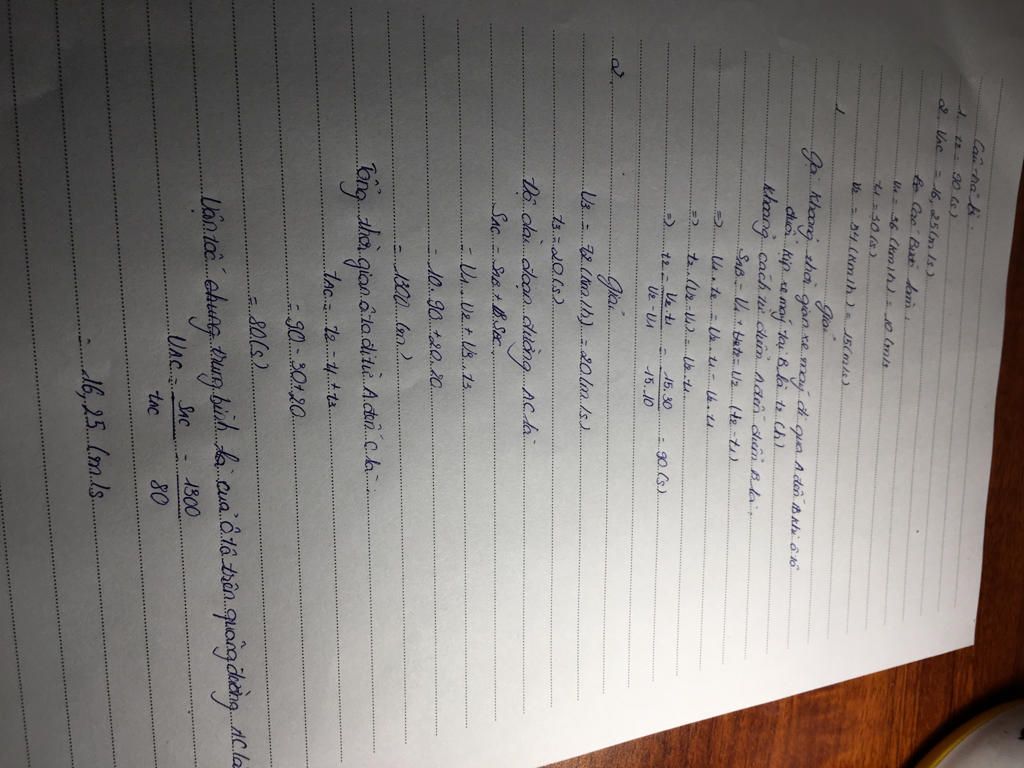 Câu trả lời
1. t2 = 90 (s)
2. VAC = 16,25 (m/s)
Các Bước
v1 = 36 (km/h) = 10 (m/s)
t1 = 30 (s)
v2 = 54 (km/h) = 15 (m/s)
1 Giải
Gọi khoảng thời gian xe máy đi qua A đến B khi ô tô
đuổi kịp xe máy tại B là t2 (h)
Khoảng cách từ điểm A đến điểm B là:
SAB = v1. t2 = v2 (t2 - t1)
=> v1. t2 = v2. t2 - v2. t1
=> t2 (v2 - v1) = v2. t1
=> t2 = v2. t1 / v2 - v1 = 15.30 / 15-10 = 90 (s)
2 Giải
v3 = 72 (km/h) = 20 (m/s)
t3 = 20 (s)
Độ dài đoạn đường AC là
SAC = SAB + SBC
= v1. t2 + v3. t3
= 10. 90 + 20.20
= 1300 (m)
Tổng thời gian ô tô đi từ A đến C là:
tAC = t2 - t1 + t3
= 90 - 30 + 20
= 80 (s)
Vận tốc trung bình của ô tô trên quãng đường AC là
VAC = SAC / tAC = 1300 / 80
= 16,25 (m/s